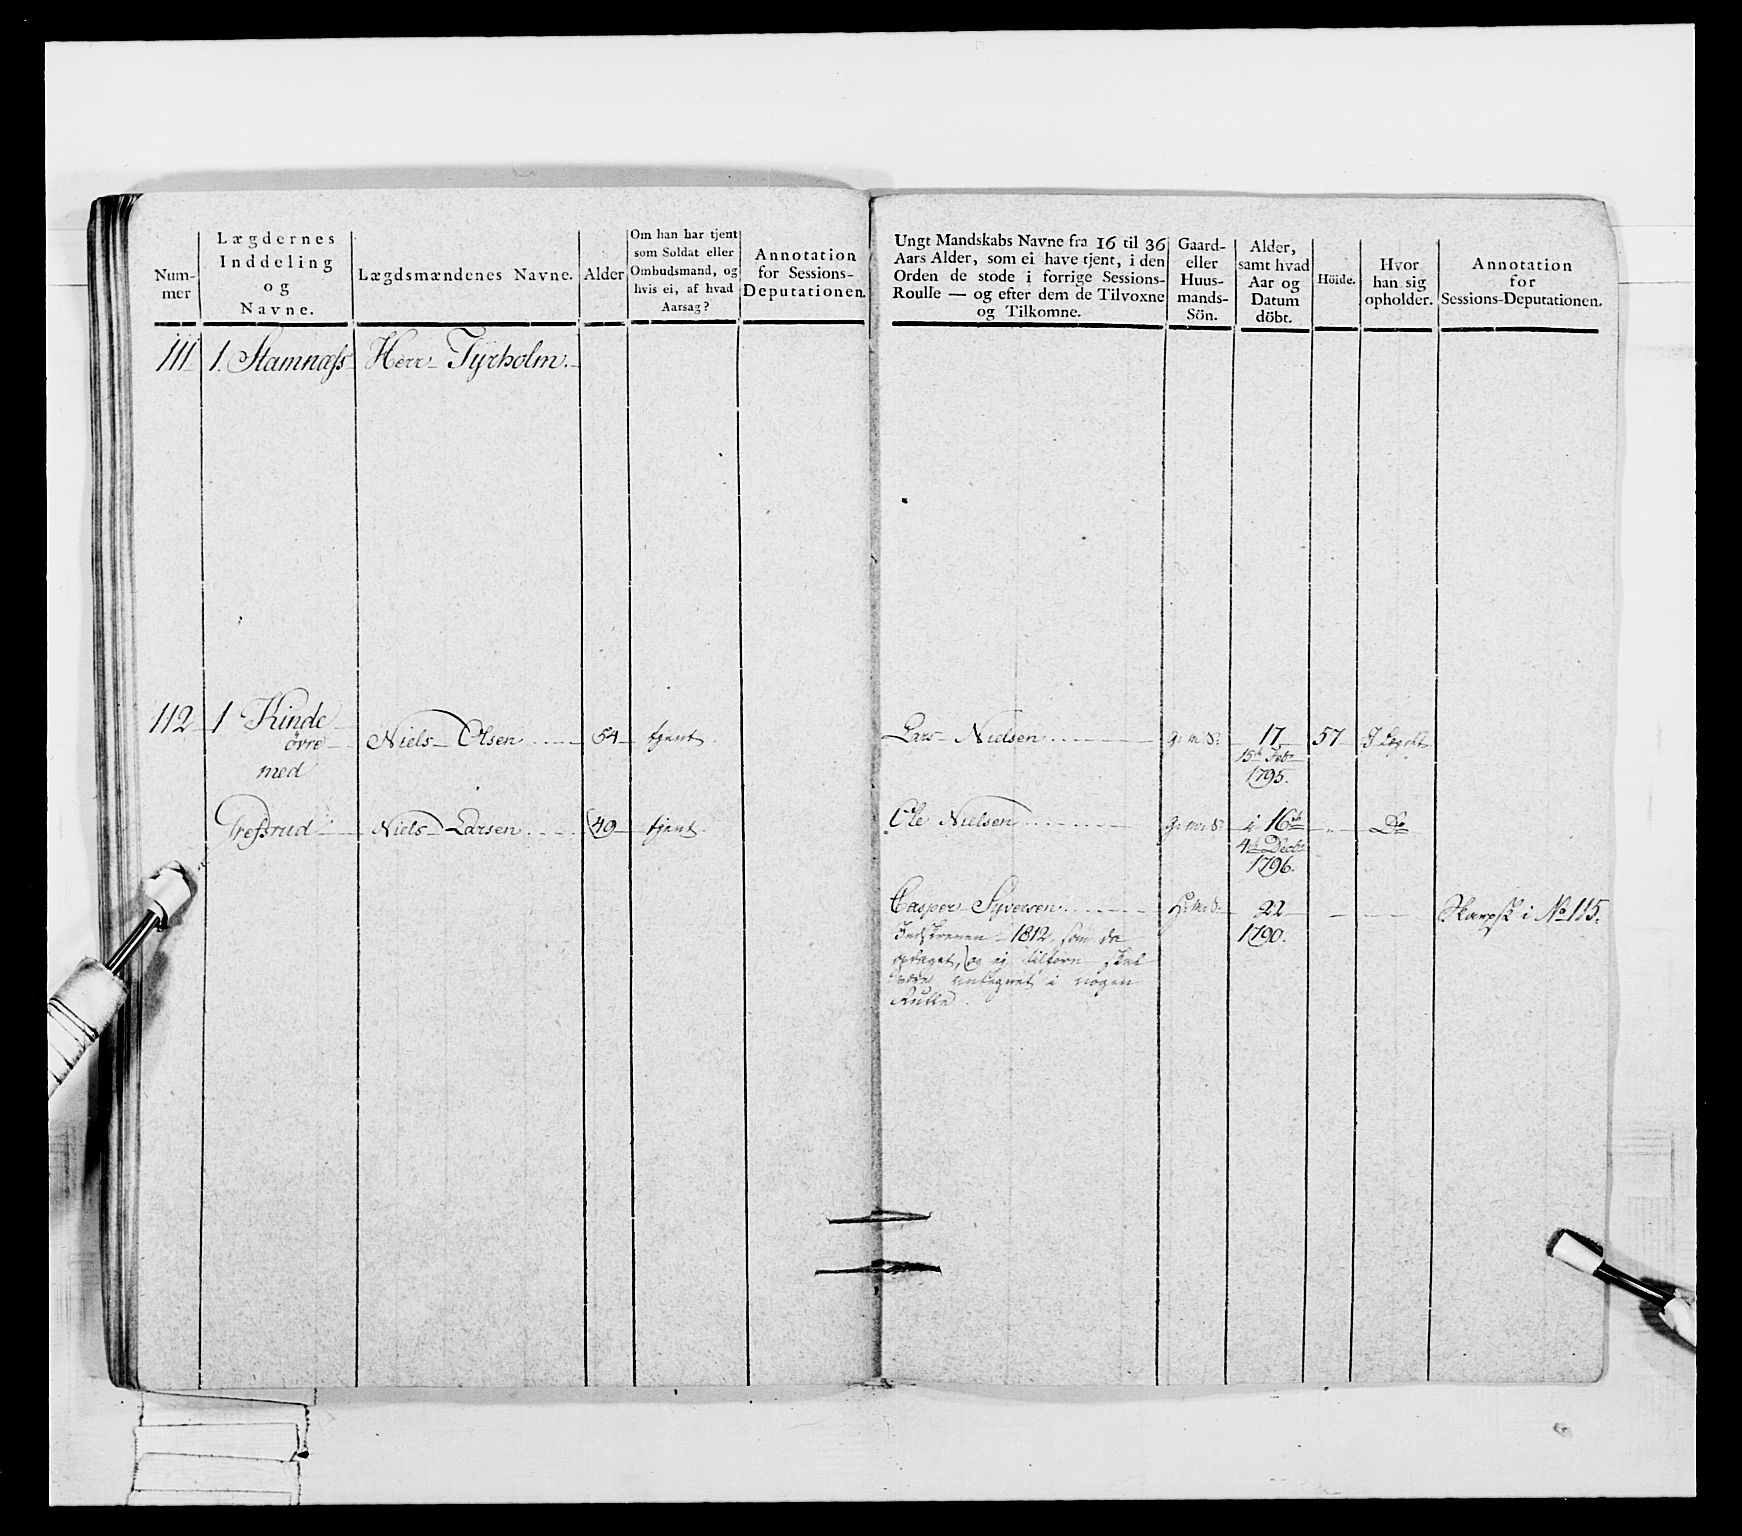 Num-
mer
Lægdernes
Inddeling
og
Navne.
Lægdsmændenes Navne.
Alder
Om han har tjent
som Soldat eller
Ombudsmand, og
hvis ei, af hvad
Aarsag?
Annotation
for Sessions-
Deputationen.
111 1. Stamnæss Herr Tyrholm.
112 1 Kinde
övre Niels Olsen 54 tjent.
med
Trefsrud Niels Larsen 49 tjent.
Ungt Mandskabs Navne fra 16 til 36
Aars Alder, som ei have tjent, i den
Orden de stode i forrige Sessions-
Roulle — og efter dem de Tilvoxne
og Tilkomne.
Gaard-
eller
Huus-
mands-
Sön.
Alder,
samt hvad
Aar og
Datum
döbt.
Höide.
Hvor
han sig
opholder.
Annotation
for
Sessions-Deputationen.
Lars Nielsen G: m: S: 17 57 I Lægdet
15de Febr
1795.
Ole Nielsen G: m: S: i 16de " Do
4de Decbr
1796.
Casper Syversen H: m: S: 22 Skarpsk i No 115.
Indskreven 1812, som da 1790.
opdaget, og ej tilforn skal
være antegnet i nogen
Rulle.